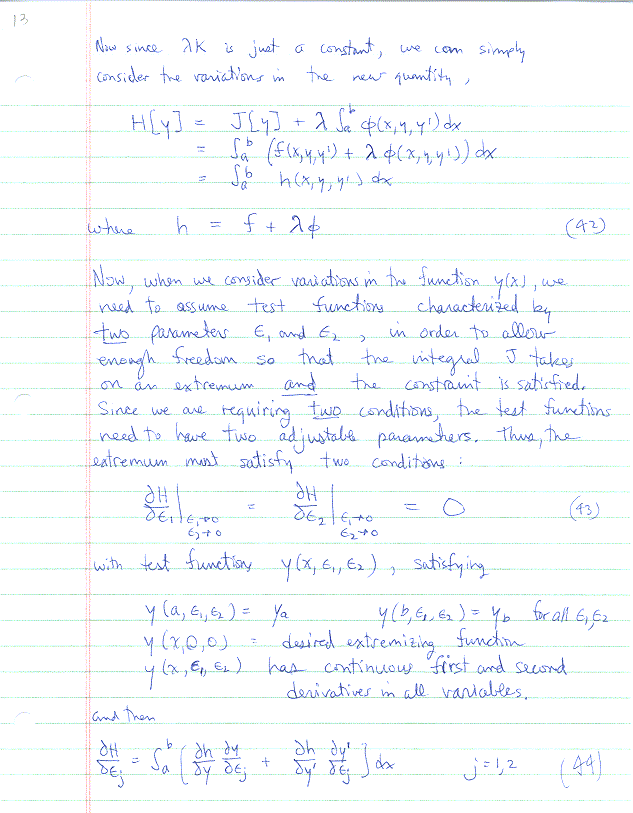 13
Now since λK is just a constant, we can simply
consider the variations in the new quantity,
H[y] = J[y] + λ ∫ₐᵇ φ(x,y,y') dx
= ∫ₐᵇ (f(x,y,y') + λ φ(x,y,y')) dx
= ∫ₐᵇ h(x,y,y') dx
where h = f + λφ (42)
Now, when we consider variations in the function y(x), we
need to assume test functions characterized by
two parameters ε₁ and ε₂, in order to allow
enough freedom so that the integral J takes
on an extremum and the constraint is satisfied.
Since we are requiring two conditions, the test functions
need to have two adjustable parameters. Thus, the
extremum must satisfy two conditions:
∂H/∂ε₁ |ε₁→0 ε₂→0 = ∂H/∂ε₂ |ε₁→0 ε₂→0 = 0 (43)
with test functions y(x, ε₁, ε₂), satisfying
y(a, ε₁, ε₂) = yₐ y(b, ε₁, ε₂) = y_b for all ε₁, ε₂
y(x,0,0) = desired extremizing function
y(x, ε₁, ε₂) has continuous first and second
derivatives in all variables.
and then
∂H/∂εⱼ = ∫ₐᵇ [ ∂h/∂y ∂y/∂εⱼ + ∂h/∂y' ∂y'/∂εⱼ ] dx j=1,2 (44)